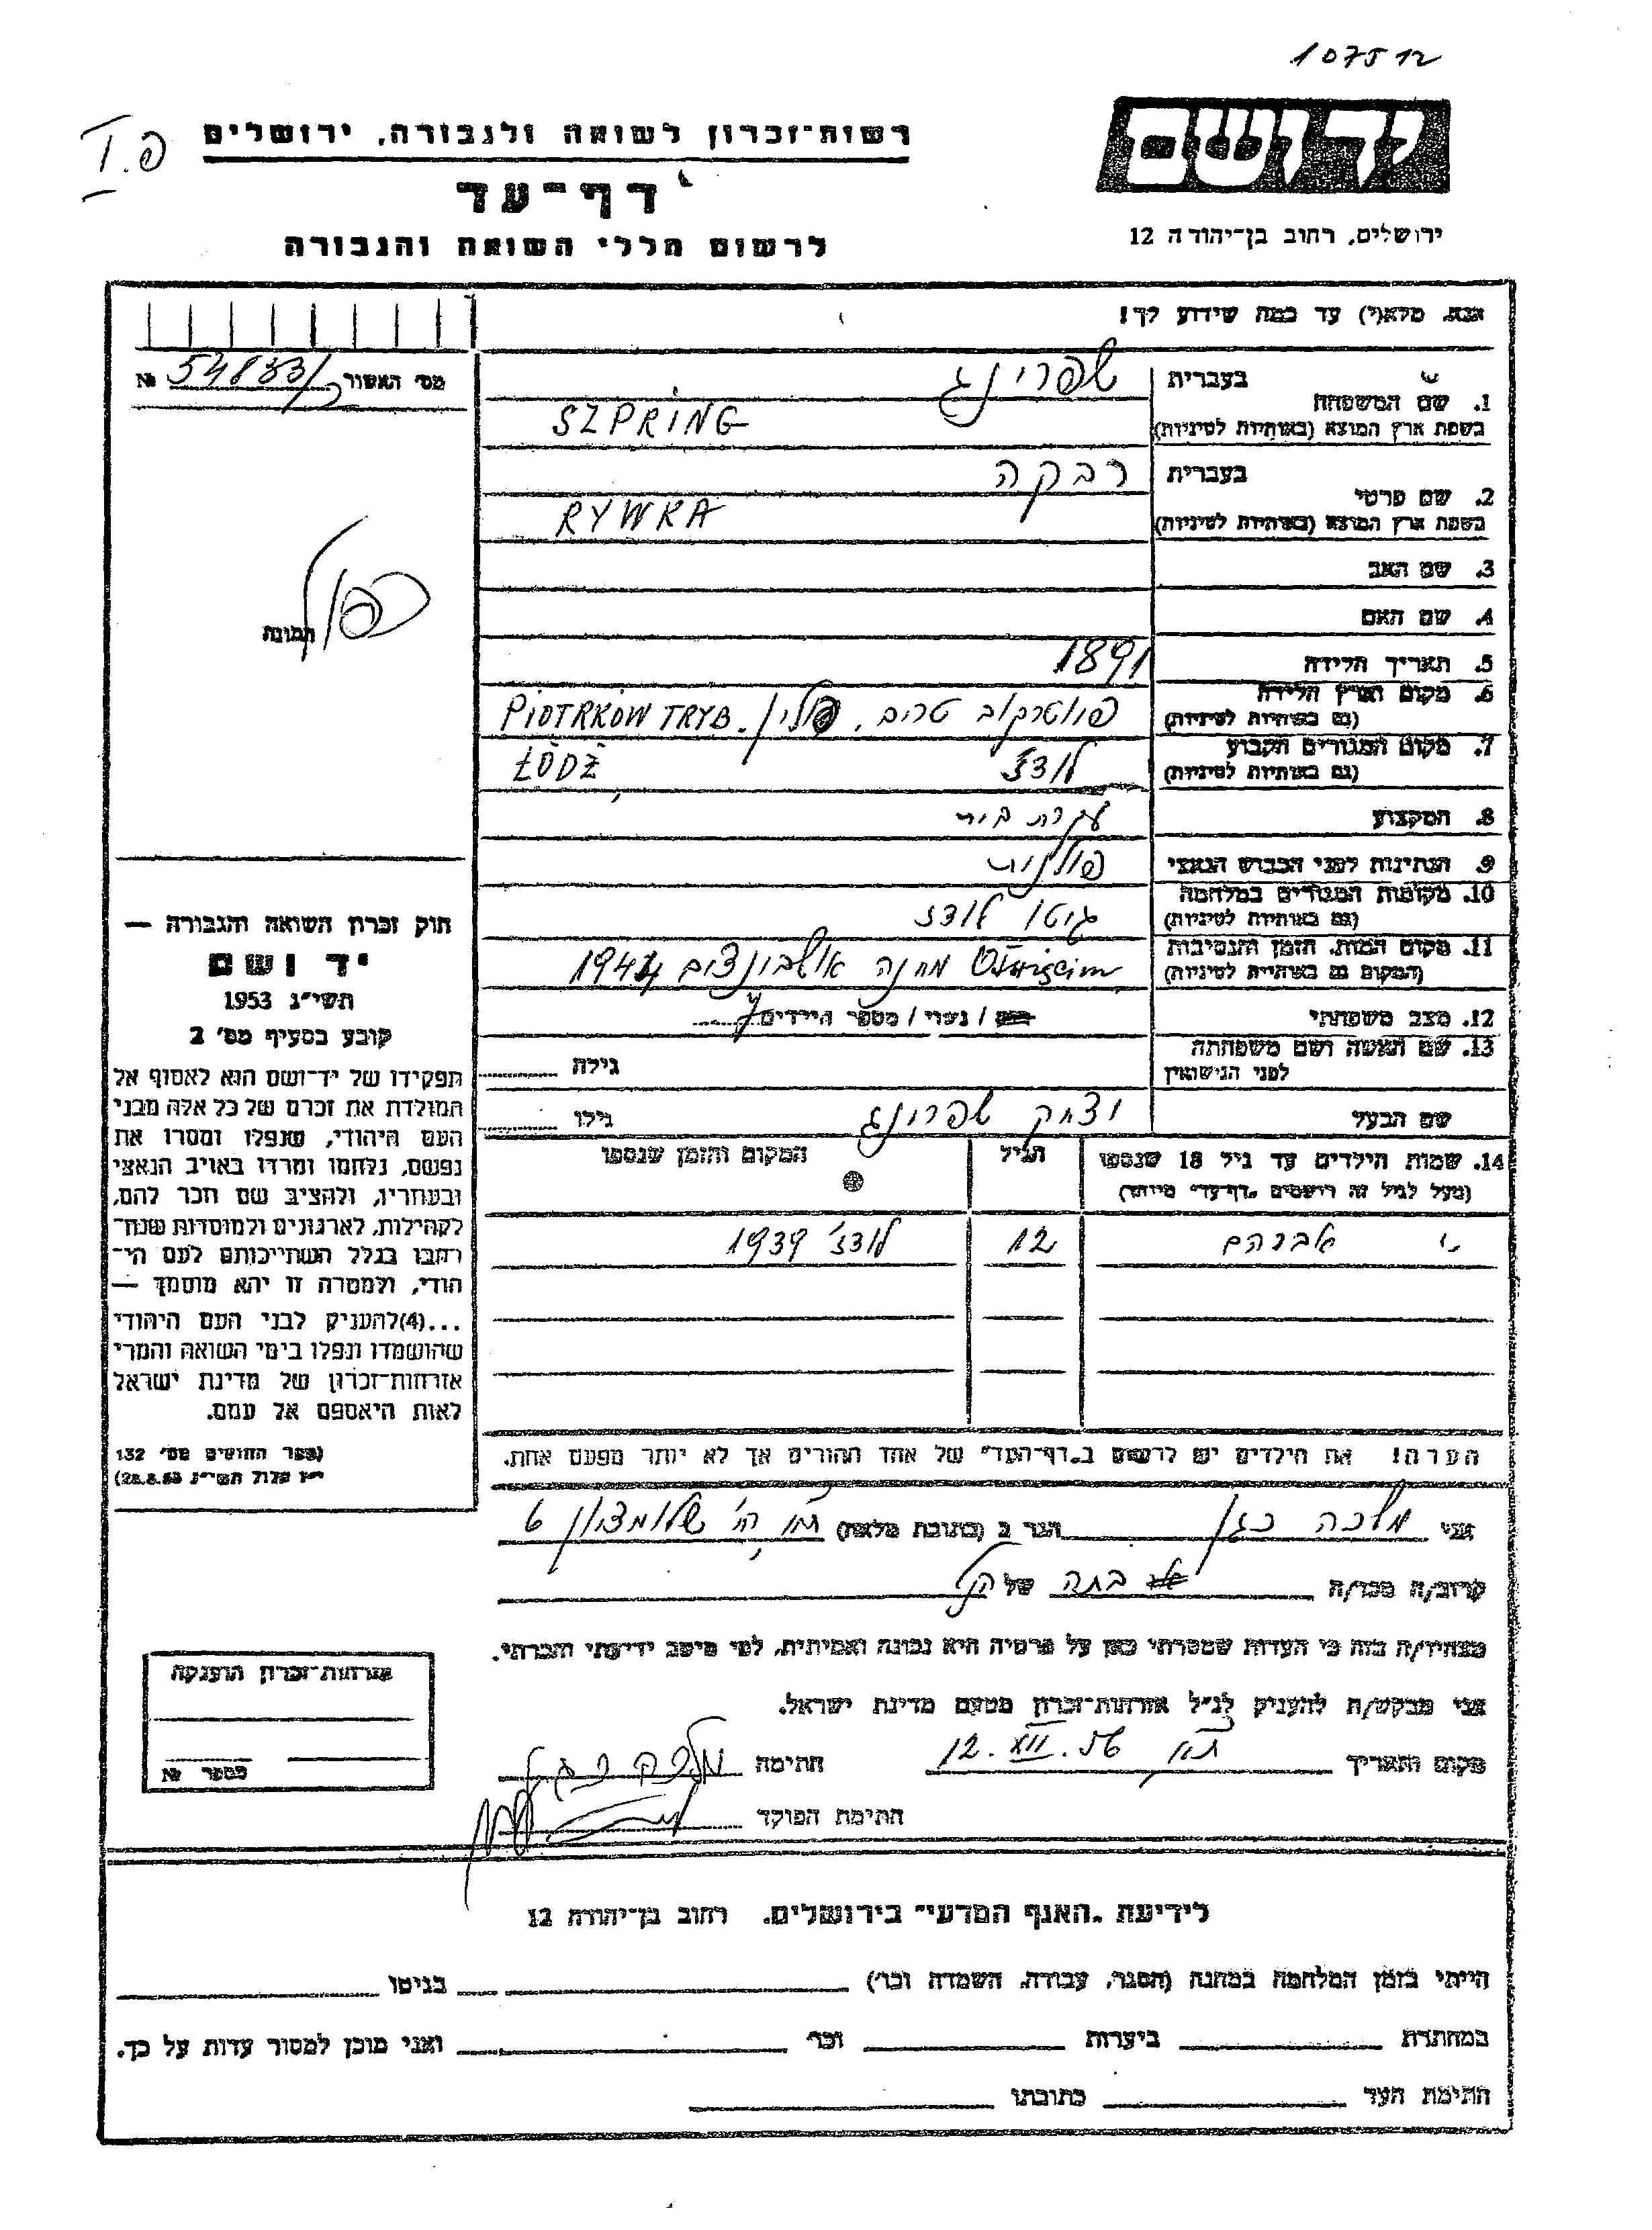 107512
יד ושם
ירושלים, רחוב בן־יהודה 12
רשות־זכרון לשואה ולגבורה, ירושלים
דף־עד
לרשום חללי השואה והגבורה
אנא, מלא(י) עד כמה שידוע לך!
מס׳ האשור № 54833/2
1. שם המשפחה
בעברית שפרינג
בשפת ארץ המוצא (באותיות לטיניות) SZPRING
2. שם פרטי
בעברית רבקה
בשפת ארץ המוצא (באותיות לטיניות) RYWKA
3. שם האב
4. שם האם
5. תאריך הלידה 1891
6. מקום וארץ הלידה
(גם באותיות לטיניות) פיוטרקוב טריב. פולין. PIOTRKÓW TRYB.
7. מקום המגורים הקבוע
(גם באותיות לטיניות) לודז׳ ŁÓDŹ
8. המקצוע עקרת בית
9. הנתינות לפני הכבוש הנאצי פולנית
10. מקומות המגורים במלחמה
(גם באותיות לטיניות) גיטו לודז
11. מקום המות, הזמן והנסיבות
(המקום גם באותיות לטיניות) Oświęcim מחנה אושבינצים 1944
12. מצב משפחתי רווק / נשוי / מספר הילדים
13. שם האשה ושם משפחתה
לפני הנישואין
גילה
שם הבעל יצחק שפרינג גילו
14. שמות הילדים עד גיל 18 שנספו
(מעל לגיל זה רושמים "דף־עד" מיוחד)
הגיל
המקום והזמן שנספו
אברהם 12 לודז׳ 1939
הערה! את הילדים יש לרשום ב"דף־העד" של אחד ההורים אך לא יותר מפעם אחת.
תמונה
כפול
חוק זכרון השואה והגבורה —
יד ושם
תשי״ג 1953
קובע בסעיף מס׳ 2
תפקידו של יד־ושם הוא לאסוף אל
המולדת את זכרם של כל אלה מבני
העם היהודי, שנפלו ומסרו את
נפשם, נלחמו ומרדו באויב הנאצי
ובעוזריו, ולהציב שם וזכר להם,
לקהילות, לארגונים ולמוסדות שנח־
רבו בגלל השתייכותם לעם הי־
הודי, ולמטרה זו יהא מוסמך —
...(4)להעניק לבני העם היהודי
שהושמדו ונפלו בימי השואה והמרי
אזרחות־זכרון של מדינת ישראל
לאות היאספם אל עמם.
(ספר החוקים מס׳ 132
י״ז אלול תשי״ג 28.8.53)
אני מלכה כגן הגר ב (כתובת מלאה) ת״א רח׳ שלומציון 6
קרוב/ה מכר/ה בתה של הנ״ל
מצהיר/ה בזה כי העדות שמסרתי כאן על פרטיה היא נכונה ואמיתית, לפי מיטב ידיעתי והכרתי.
אני מבקש/ת להעניק לנ״ל אזרחות־זכרון מטעם מדינת ישראל.
מקום ותאריך ת״א 12.XII.56 חתימה מלכה כגן
חתימת הפוקד
אזרחות־זכרון הוענקה
מספר №
לידיעת "האגף המדעי" בירושלים, רחוב בן־יהודה 12
הייתי בזמן המלחמה במחנה (הסגר, עבודה, השמדה וכו׳) בגיטו
במחתרת ביערות וכו׳ ואני מוכן למסור עדות על כך.
חתימת העד כתובתו